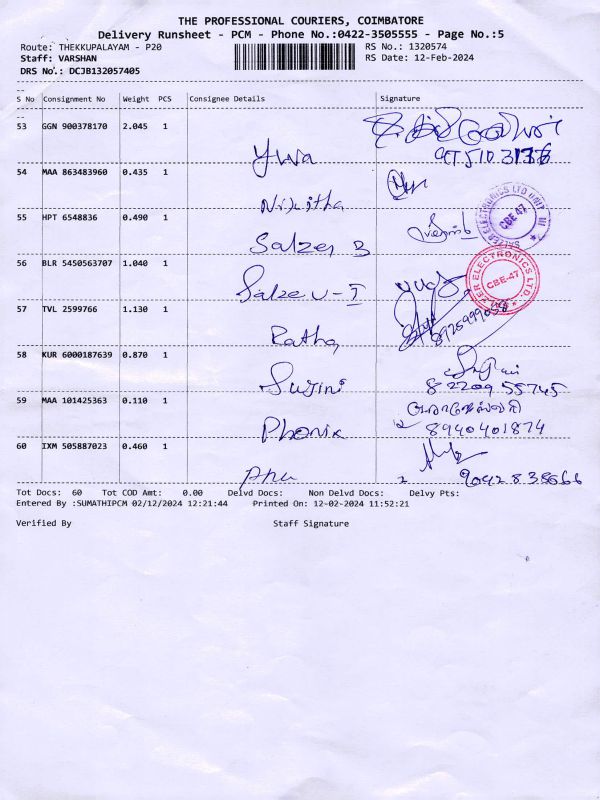 THE PROFESSIONAL COURIERS, COIMBATORE
Delivery Runsheet - PCM - Phone No.:0422-3505555 - Page No.:5
Route: THEKKUPALAYAM - P20 RS No.: 1320574
Staff: VARSHAN RS Date: 12-Feb-2024
DRS No.: DCJB132057405
S No Consignment No Weight PCS Consignee Details Signature
53 GGN 900378170 2.045 1
Yuva
54 MAA 863483960 0.435 1
Nikitha
55 HPT 6548836 0.490 1
Salzer B
SALZER ELECTRONICS LTD UNIT III
CBE 47
56 BLR 5450563707 1.040 1
Salzer U-I
SALZER ELECTRONICS LTD.
CBE-47
57 TVL 2599766 1.130 1
8925999058
Ratha
58 KUR 6000187639 0.870 1
Surini 8 2209 55745
59 MAA 101425363 0.110 1
Phonix 8940401874
60 IXM 505887023 0.460 1
Anu 2
Tot Docs: 60 Tot COD Amt: 0.00 Delvd Docs: Non Delvd Docs: Delvy Pts:
Entered By :SUMATHIPCM 02/12/2024 12:21:44 Printed On: 12-02-2024 11:52:21
Verified By Staff Signature